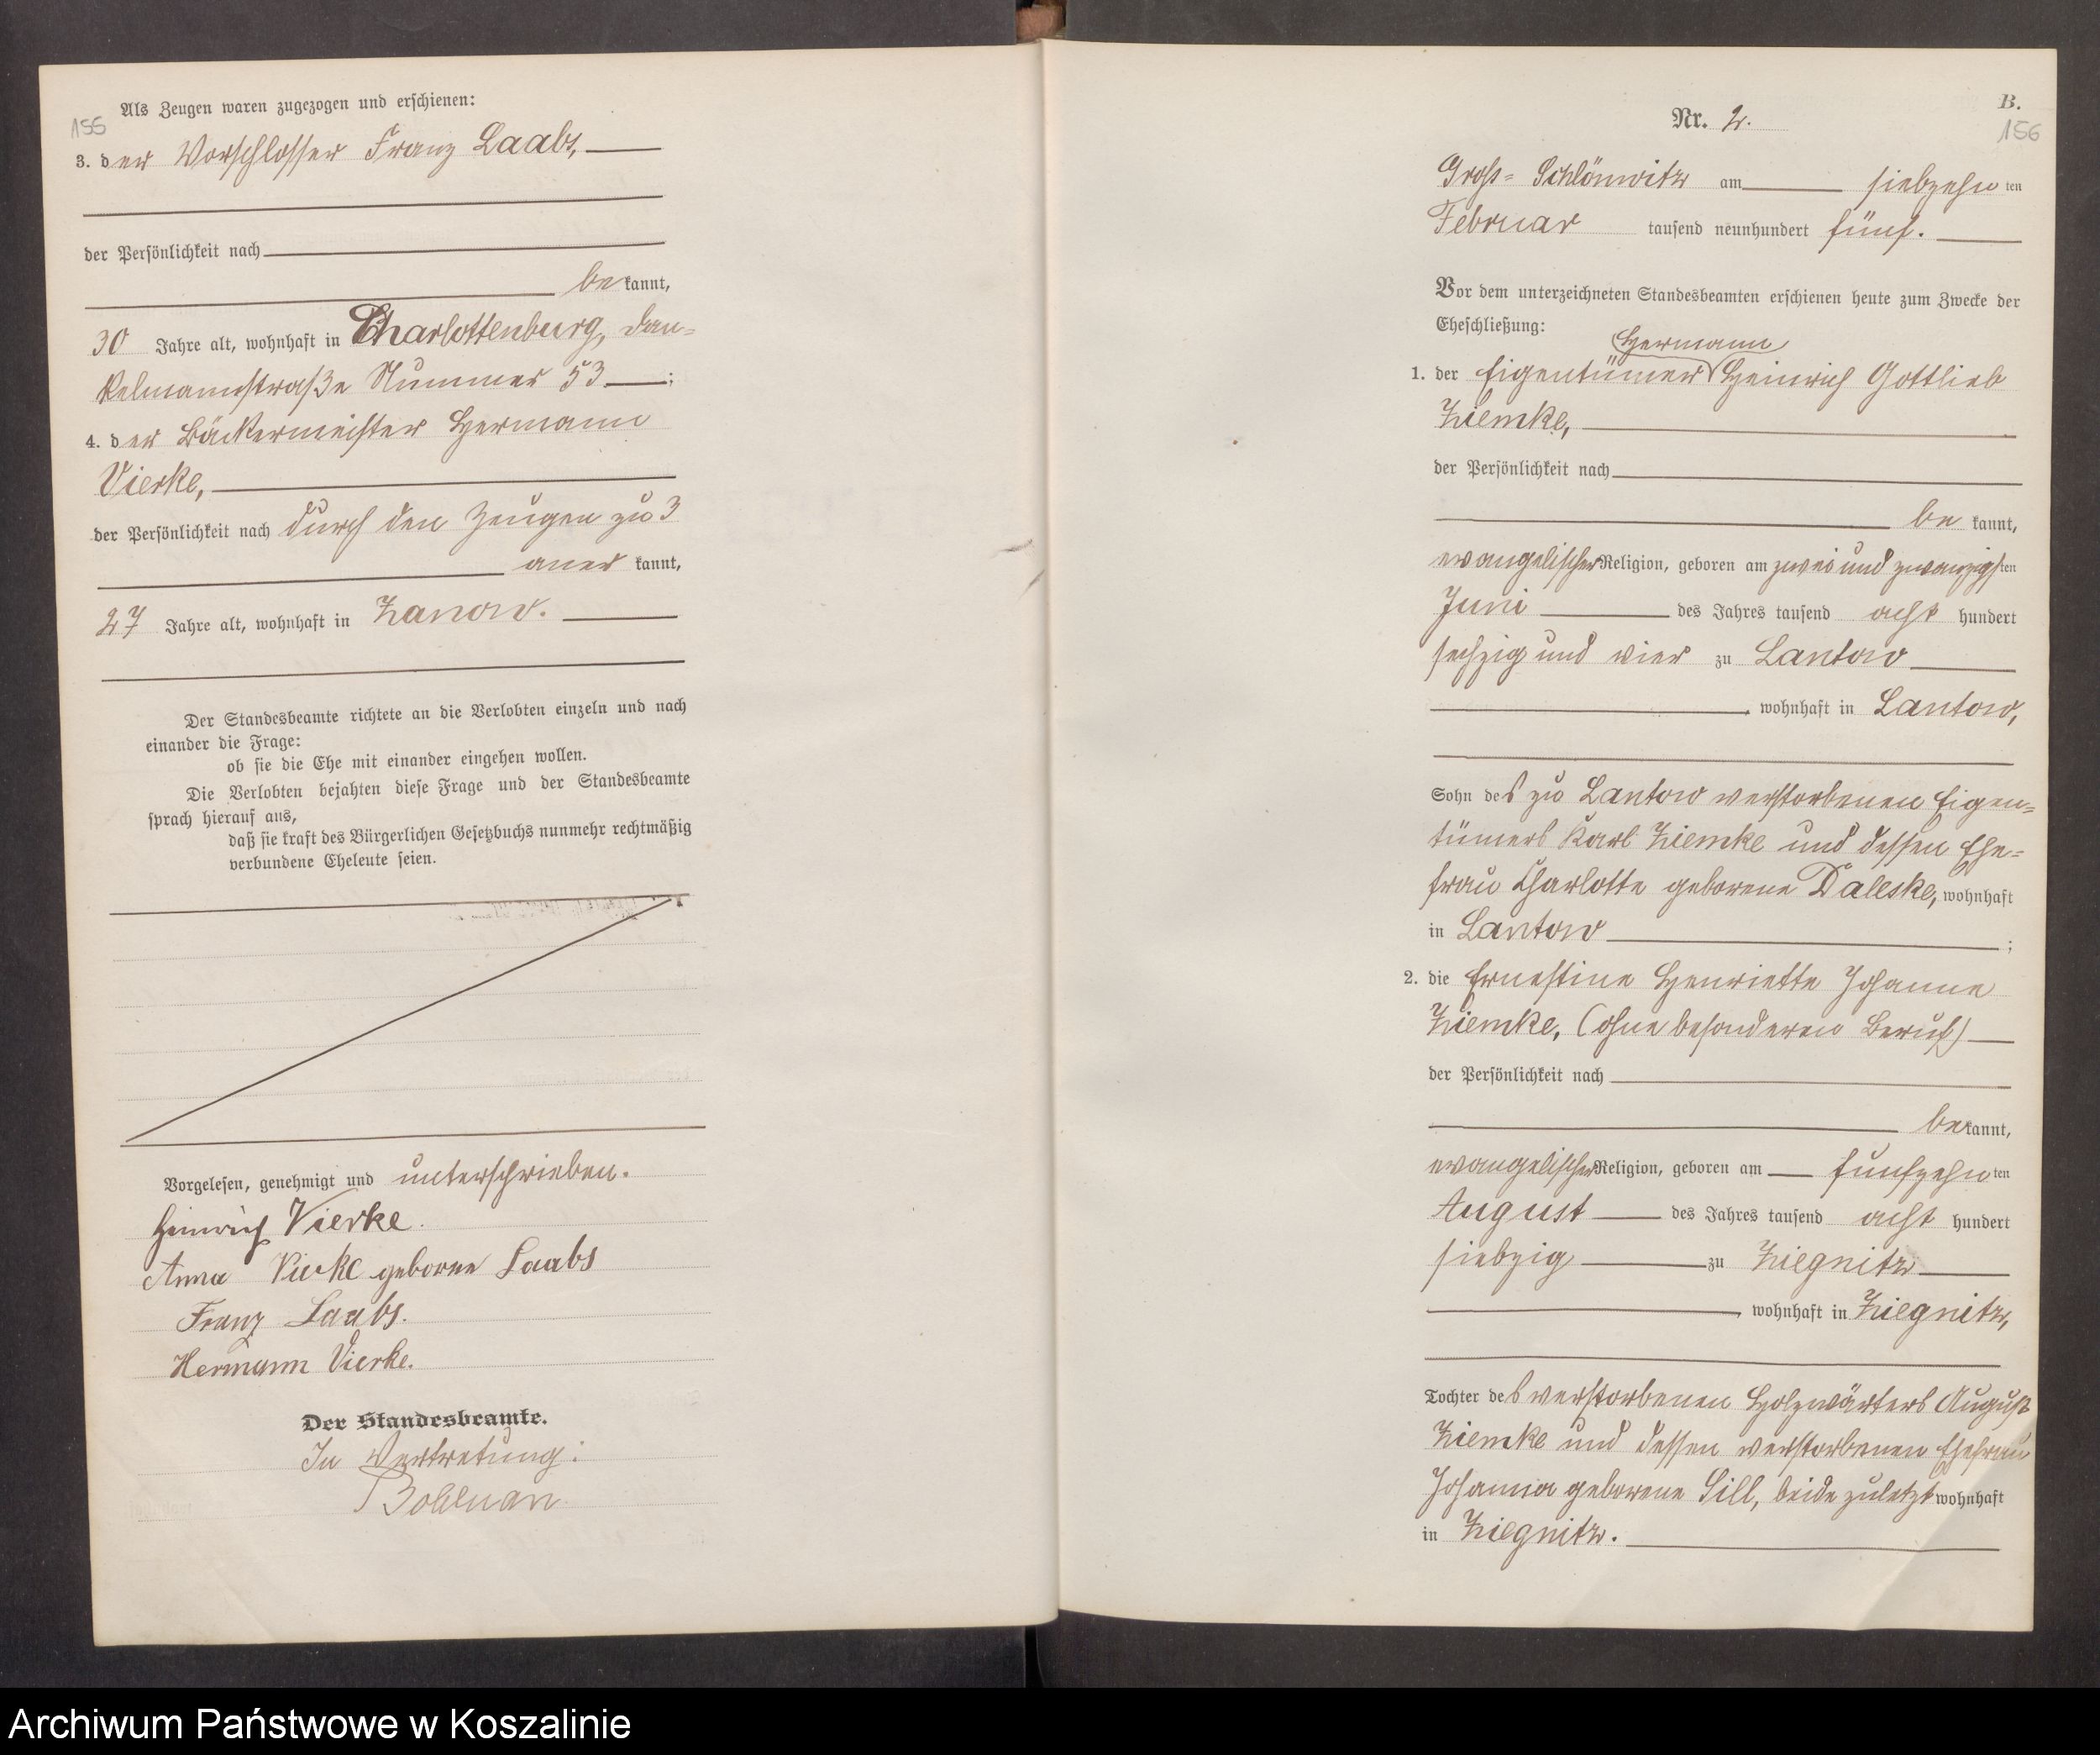 155
Als Zeugen waren zugezogen und erschienen:
3. der Vorschlosser Franz Laabs,
der Persönlichkeit nach
bekannt,
30 Jahre alt, wohnhaft in Charlottenburg, Dan-
kelmannstraße Nummer 53;
4. der Bäckermeister Hermann
Vierke,
der Persönlichkeit nach durch den Zeugen zu 3
anerkannt,
27 Jahre alt, wohnhaft in Zanow.
Der Standesbeamte richtete an die Verlobten einzeln und nach
einander die Frage:
ob sie die Ehe mit einander eingehen wollen.
Die Verlobten bejahten diese Frage und der Standesbeamte
sprach hierauf aus,
daß sie kraft des Bürgerlichen Gesetzbuchs nunmehr rechtmäßig
verbundene Eheleute seien.
Vorgelesen, genehmigt und unterschrieben.
Heinrich Vierke.
Anna Vierke geborne Laabs
Franz Laabs.
Hermann Vierke.
Der Standesbeamte.
In Vertretung:
B.
156
Nr. 2.
Groß-Schlönwitz am siebzehnten
Februar tausend neunhundert fünf.
Vor dem unterzeichneten Standesbeamten erschienen heute zum Zwecke der
Eheschließung:
Hermann
1. der Eigentümer Heinrich Gottlieb
Ziemke,
der Persönlichkeit nach
bekannt,
evangelischer Religion, geboren am zwei und zwanzigsten
Juni des Jahres tausend acht hundert
sechzig und vier zu Lantow
, wohnhaft in Lantow,
Sohn des zu Lantow verstorbenen Eigen-
tümers Karl Ziemke und dessen Ehe-
frau Charlotte geborene Daleske, wohnhaft
in Lantow;
2. die Ernestine Henriette Johanne
Ziemke, (ohne besonderen Beruf)
der Persönlichkeit nach
bekannt,
evangelischer Religion, geboren am fünfzehnten
August des Jahres tausend acht hundert
siebzig zu Ziegnitz
, wohnhaft in Ziegnitz,
Tochter des verstorbenen Holzwärters August
Ziemke und dessen verstorbenen Ehefrau
Johanna geborene Sill, beide zuletzt wohnhaft
in Ziegnitz.
Archiwum Państwowe w Koszalinie